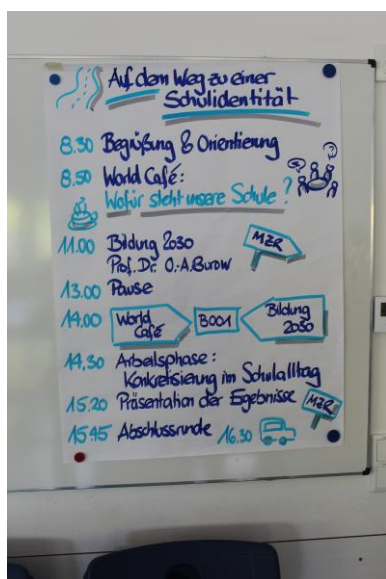 Auf dem Weg zu einer
Schulidentität
8.30 Begrüßung & Orientierung
8.50 World Café:
Wofür steht unsere Schule?
11.00 Bildung 2030
Prof. Dr. O.-A. Burow
MZR
13.00 Pause
14.00 World Café B001 Bildung 2030
14.30 Arbeitsphase:
Konkretisierung im Schulalltag
15.20 Präsentation der Ergebnisse MZR
15.45 Abschlussrunde 16.30